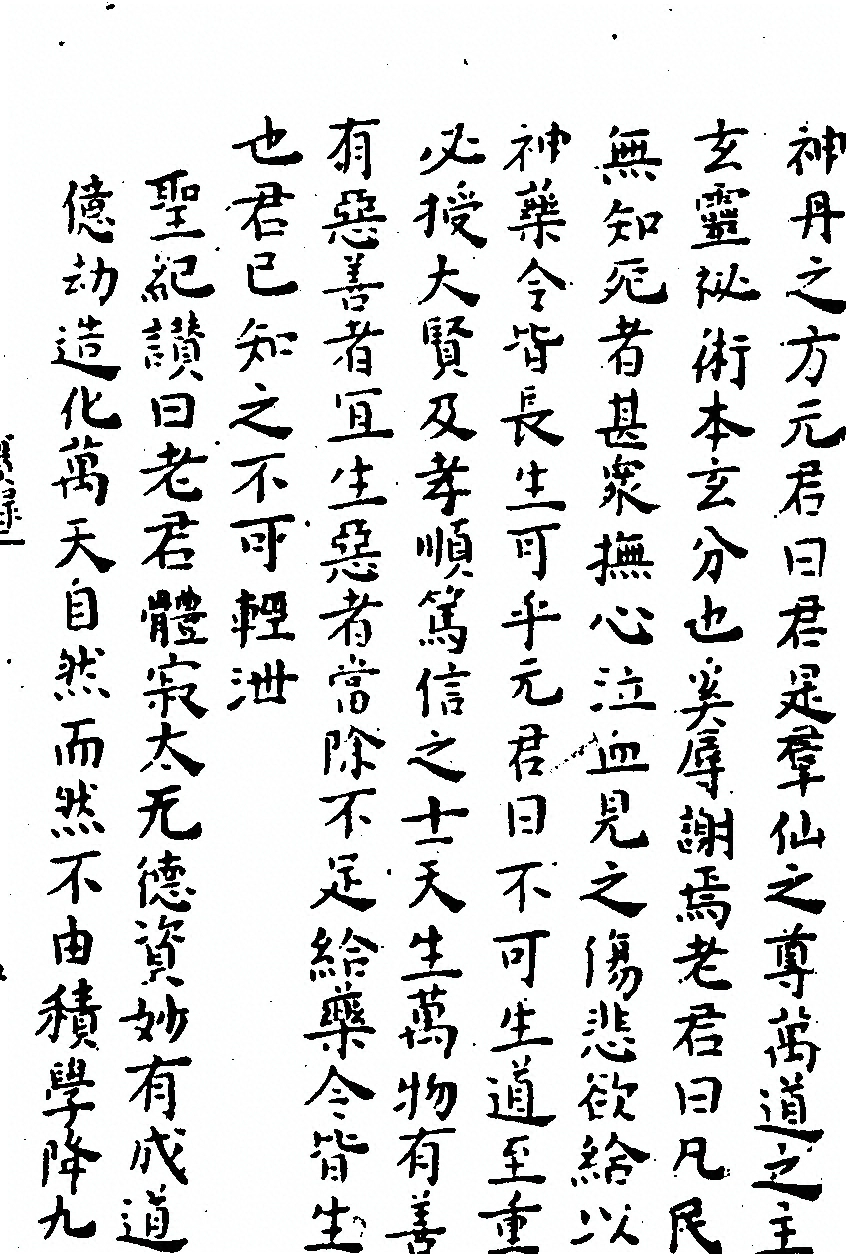 神丹之方元君曰君是羣仙之尊萬道之主
玄靈祕術本玄分也奚辱謝焉老君曰凡民
無知死者甚衆撫心泣血見之傷悲欲給以
神藥令皆長生可乎元君曰不可生道至重
必授大賢及孝順篤信之士天生萬物有善
有惡善者冝生惡者當除不足給藥令皆生
也君已知之不可輕泄
聖紀讃曰老君體寂太无德資妙有成道
億劫造化萬天自然而然不由積學降九